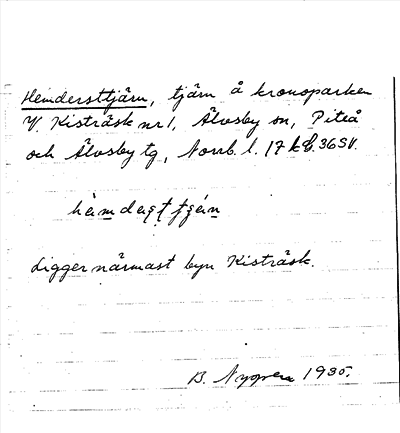 Hemdersttjärn, tjärn å kronoparken
V. Kisträsk nr 1, Älvsby sn, Piteå
och Älvsby tg, Norrb. l. 17 36SV.
Ligger närmast byn Kisträsk.
B. 1935.